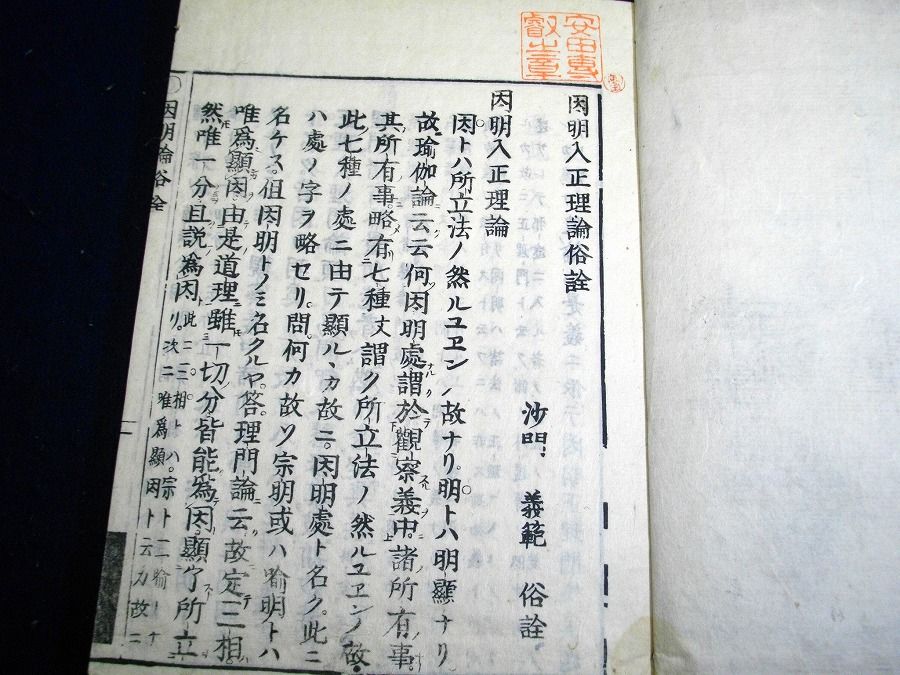 因明入正理論俗詮
沙門 義範 俗詮
因明入正理論
因トハ所立法ノ然ルユヱンノ故ナリ。明トハ明顯ナリ
故瑜伽論云云何因明處謂於觀察義中諸所有事
其所有事略有七種丈謂ク所立法ノ然ルユヱンノ故。
此七種ノ處ニ由テ顯ル、カ故ニ。因明處ト名ク。此ニ
ハ處ノ字ヲ略セリ。問。何カ故ソ宗明或ハ喻明トハ
名ケス。但因明トノミ名クルヤ。答。理門論云故定三相
唯爲顯因由是道理雖一切分皆能爲因顯了所立
然唯一分且説爲因此ニ三相トハ。宗ト二喻ナリ。次ニ唯爲顯因ト云カ故ニ
因明論俗全